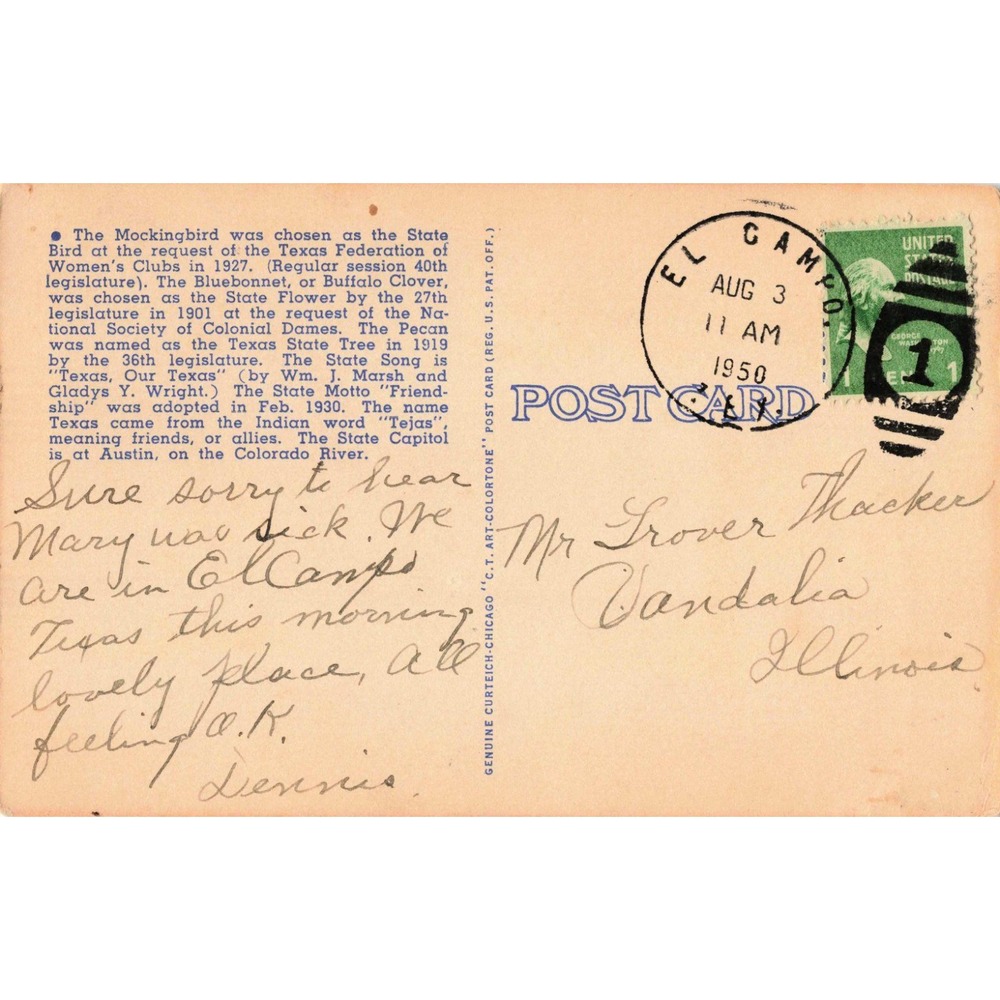 ● The Mockingbird was chosen as the State
Bird at the request of the Texas Federation of
Women's Clubs in 1927. (Regular session 40th
legislature). The Bluebonnet, or Buffalo Clover,
was chosen as the State Flower by the 27th
legislature in 1901 at the request of the Na-
tional Society of Colonial Dames. The Pecan
was named as the Texas State Tree in 1919
by the 36th legislature. The State Song is
"Texas, Our Texas" (by Wm. J. Marsh and
Gladys Y. Wright.) The State Motto "Friend-
ship" was adopted in Feb. 1930. The name
Texas came from the Indian word "Tejas",
meaning friends, or allies. The State Capitol
is at Austin, on the Colorado River.
Sure sorry to hear
Mary was sick. We
are in El Campo
Texas this morning
lovely place, All
feeling O.K.
Dennis.
GENUINE CURTEICH-CHICAGO "C.T. ART-COLORTONE" POST CARD (REG. U.S. PAT. OFF.)
POST CARD
EL CAMPO
AUG 3
11 AM
1950
TEX.
UNITED
STATES
POSTAGE
GEORGE
1 CENT 1
1
Mr Grover Thacker
Vandalia
Illinois